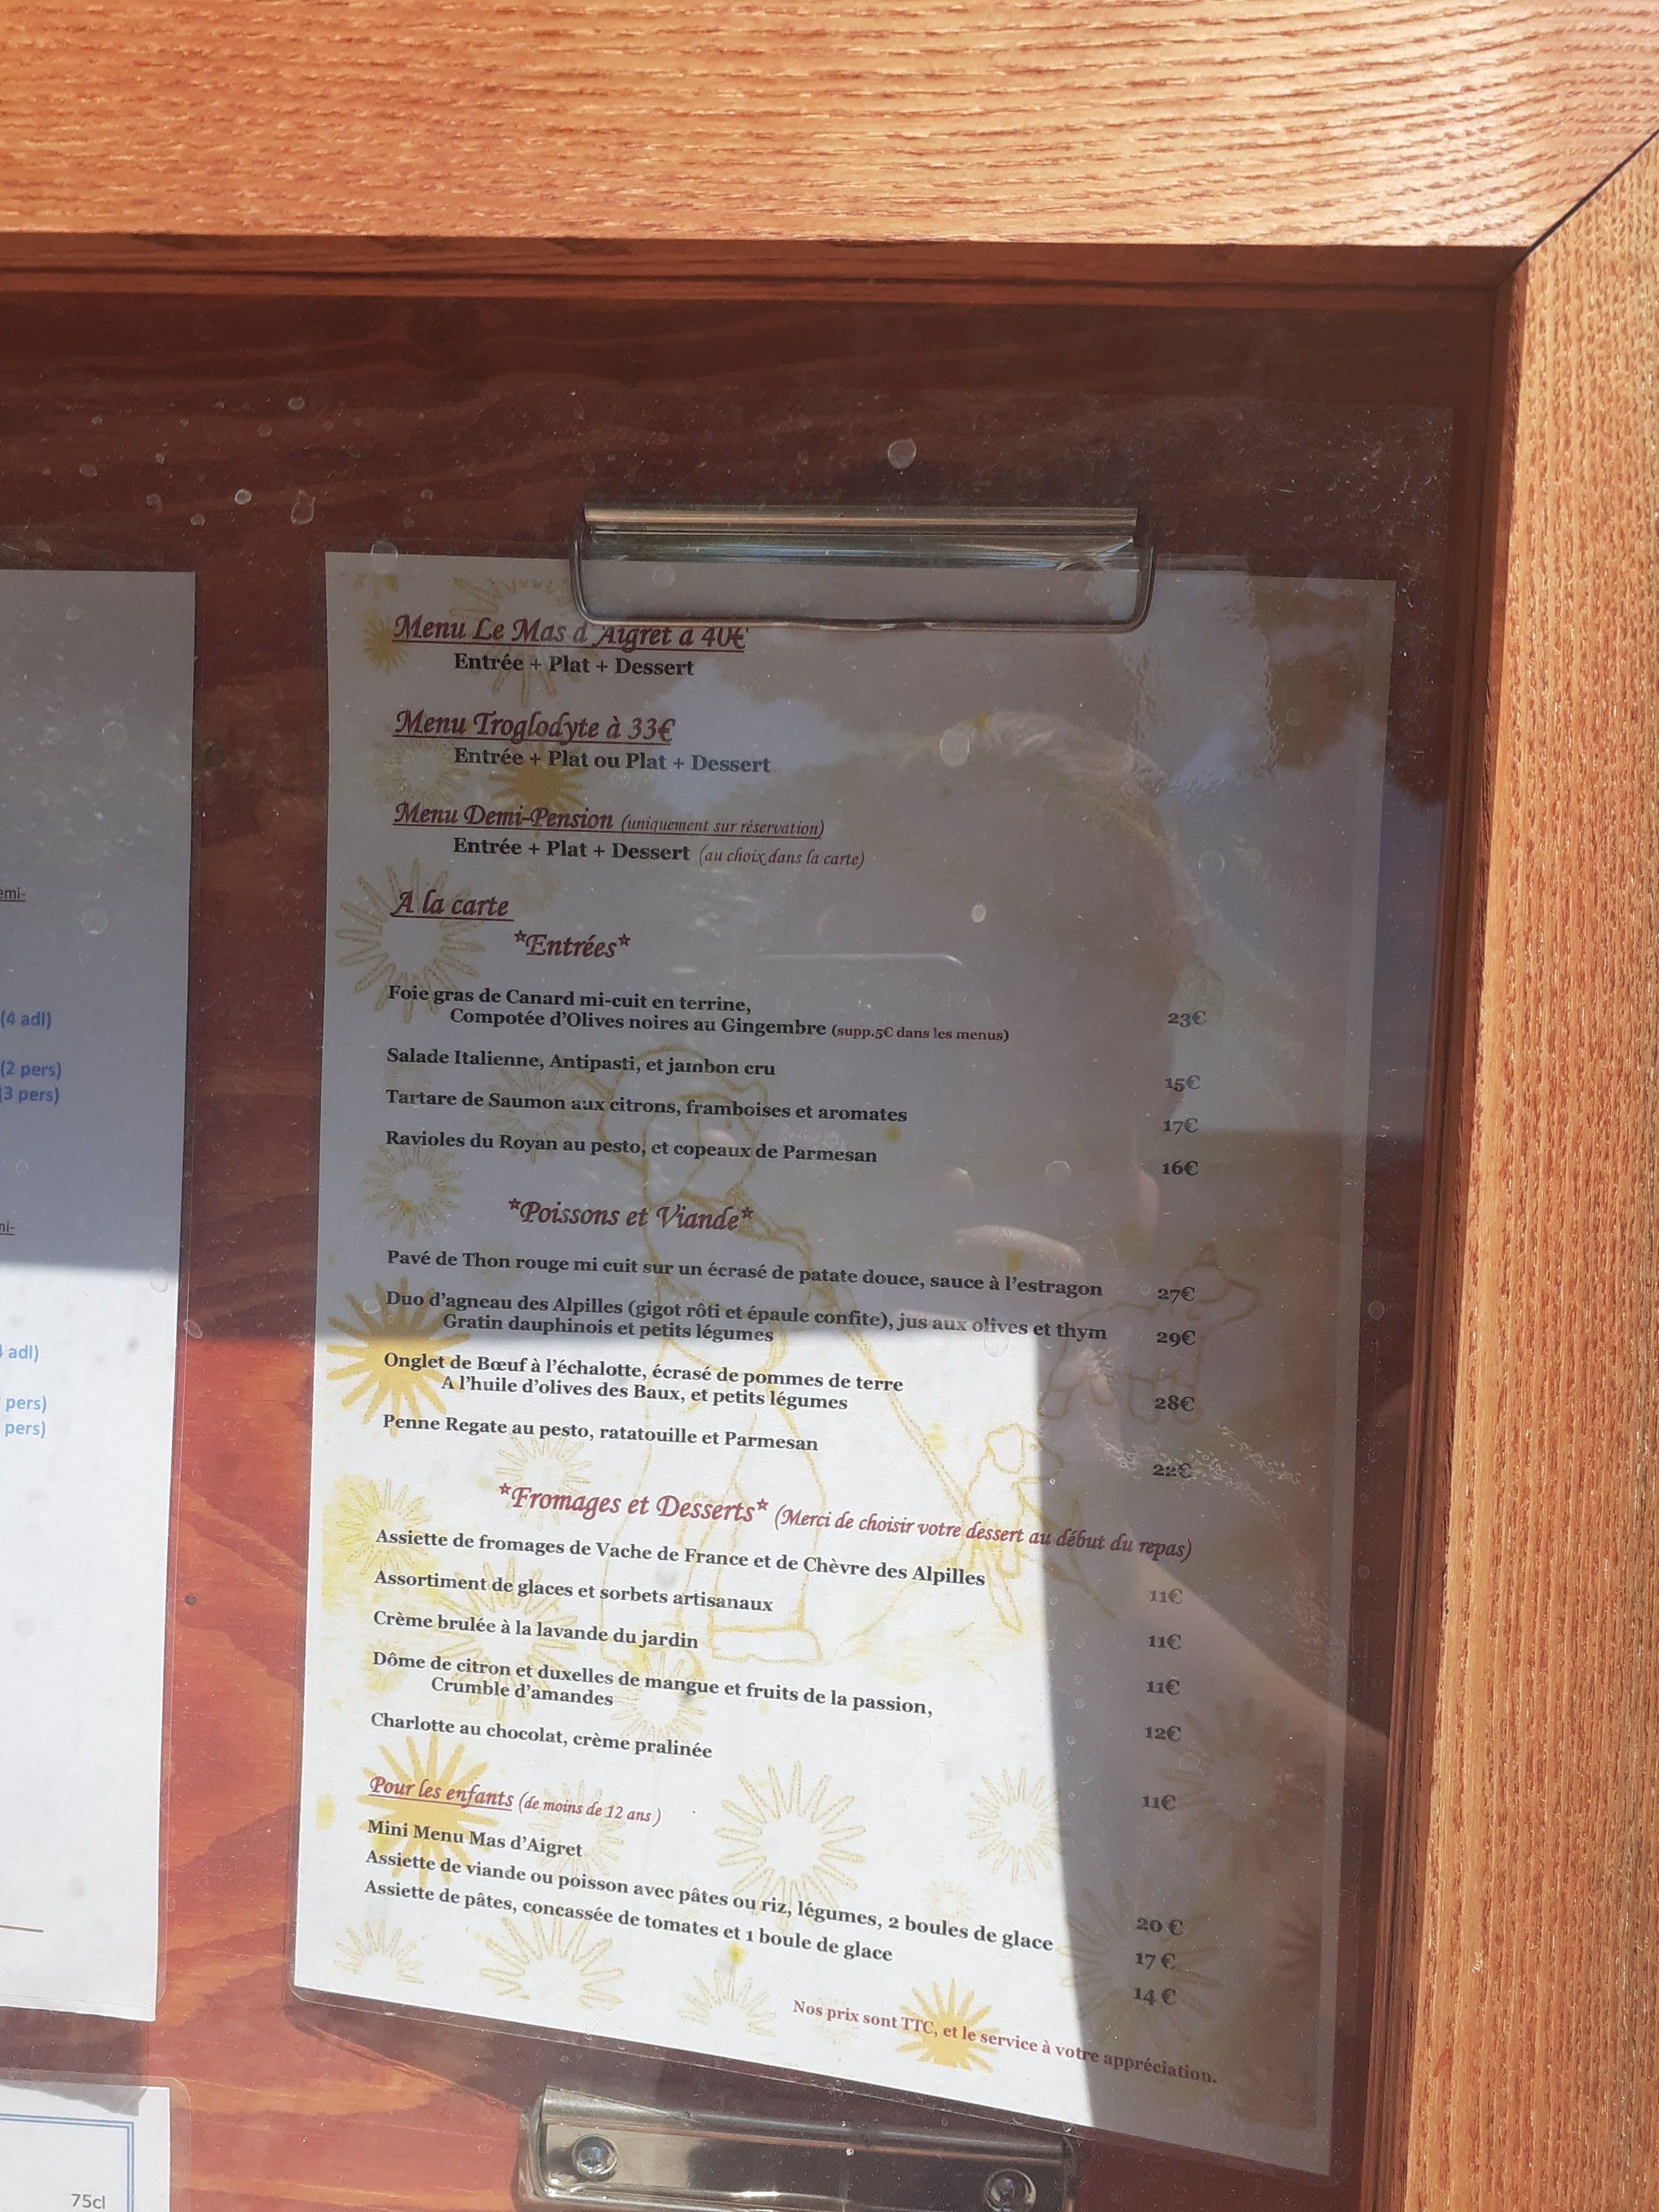 Menu Le Mas d'Aigret à 40€
Entrée + Plat + Dessert
Menu Troglodyte à 33€
Entrée + Plat ou Plat + Dessert
Menu Demi-Pension (uniquement sur réservation)
Entrée + Plat + Dessert (au choix dans la carte)
A la carte
*Entrées*
Foie gras de Canard mi-cuit en terrine,
Compotée d'Olives noires au Gingembre (supp.5€ dans les menus) 23€
Salade Italienne, Antipasti, et jambon cru 15€
Tartare de Saumon aux citrons, framboises et aromates 17€
Ravioles du Royan au pesto, et copeaux de Parmesan 16€
*Poissons et Viande*
Pavé de Thon rouge mi cuit sur un écrasé de patate douce, sauce à l'estragon 27€
Duo d'agneau des Alpilles (gigot rôti et épaule confite), jus aux olives et thym 29€
Gratin dauphinois et petits légumes
Onglet de Bœuf à l'échalotte, écrasé de pommes de terre
A l'huile d'olives des Baux, et petits légumes 28€
Penne Regate au pesto, ratatouille et Parmesan 22€
*Fromages et Desserts* (Merci de choisir votre dessert au début du repas)
Assiette de fromages de Vache de France et de Chèvre des Alpilles 11€
Assortiment de glaces et sorbets artisanaux 11€
Crème brulée à la lavande du jardin 11€
Dôme de citron et duxelles de mangue et fruits de la passion, 12€
Crumble d'amandes
Charlotte au chocolat, crème pralinée 11€
Pour les enfants (de moins de 12 ans )
Mini Menu Mas d'Aigret 20 €
Assiette de viande ou poisson avec pâtes ou riz, légumes, 2 boules de glace 17 €
Assiette de pâtes, concassée de tomates et 1 boule de glace 14 €
Nos prix sont TTC, et le service à votre appréciation.
(4 adl)
(2 pers)
(3 pers)
adl)
pers)
pers)
75cl